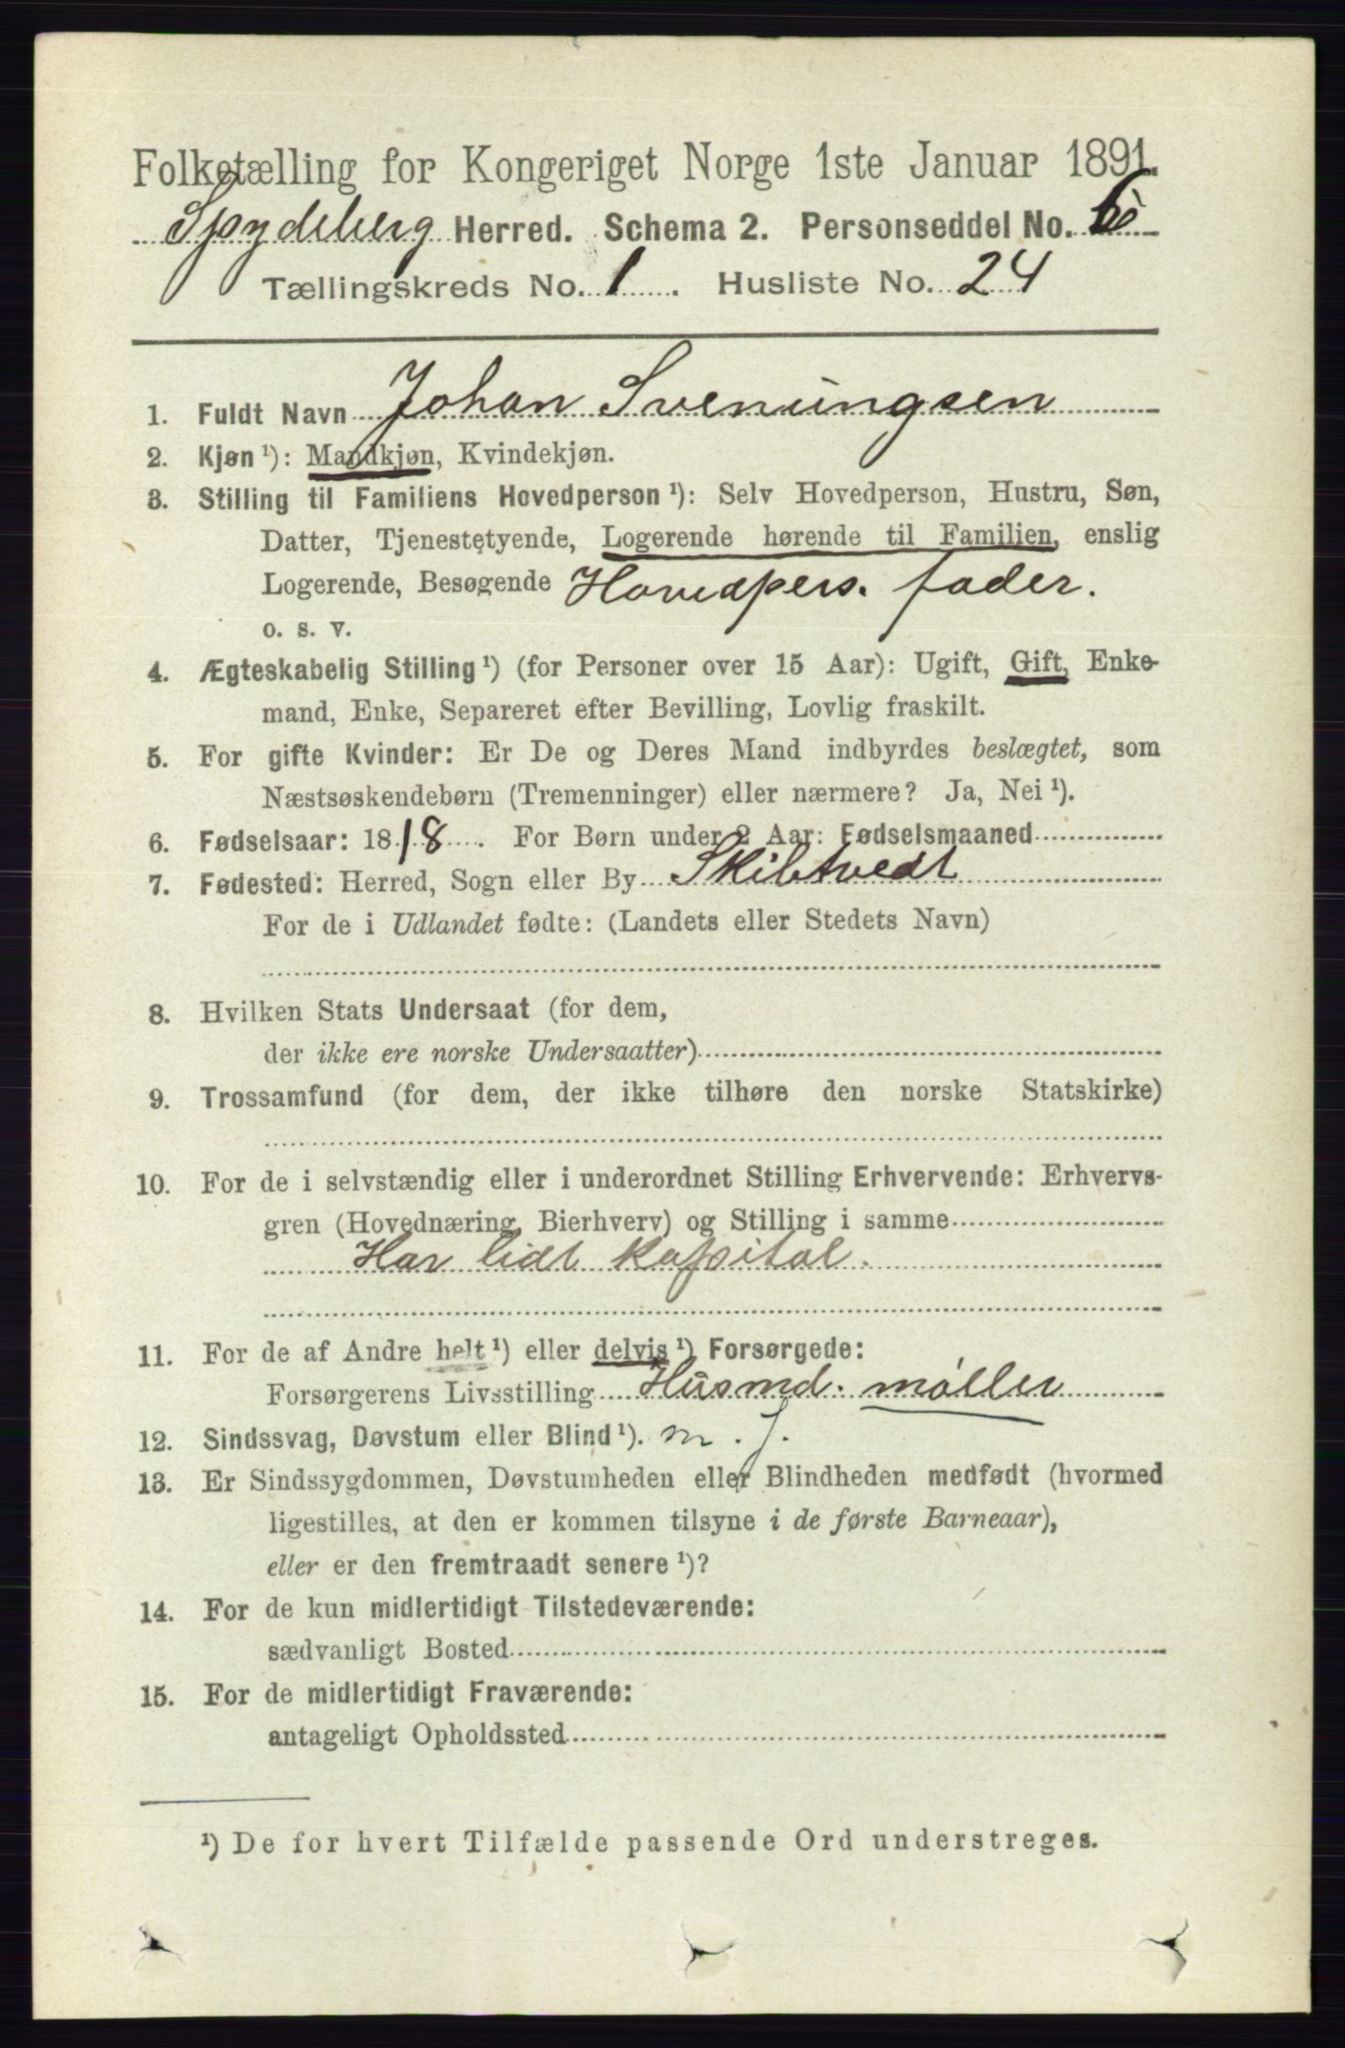 Folketælling for Kongeriget Norge 1ste Januar 1891.
Spydeberg Herred. Schema 2. Personseddel No. 6
Tællingskreds No. 1. Husliste No. 24
1. Fuldt Navn Johan Svenungsen
2. Kjøn ¹): Mandkjøn, Kvindekjøn.
3. Stilling til Familiens Hovedperson ¹): Selv Hovedperson, Hustru, Søn,
Datter, Tjenestetyende, Logerende hørende til Familien, enslig
Logerende, Besøgende Hovedpers. fader.
o. s. v.
4. Ægteskabelig Stilling ¹) (for Personer over 15 Aar): Ugift, Gift, Enke-
mand, Enke, Separeret efter Bevilling, Lovlig fraskilt.
5. For gifte Kvinder: Er De og Deres Mand indbyrdes beslægtet, som
Næstsøskendebørn (Tremenninger) eller nærmere? Ja, Nei ¹).
6. Fødselsaar: 1818. For Børn under 2 Aar: Fødselsmaaned
7. Fødested: Herred, Sogn eller By Skibtvedt
For de i Udlandet fødte: (Landets eller Stedets Navn)
8. Hvilken Stats Undersaat (for dem,
der ikke ere norske Undersaatter)
9. Trossamfund (for dem, der ikke tilhøre den norske Statskirke)
10. For de i selvstændig eller i underordnet Stilling Erhvervende: Erhvervs-
gren (Hovednæring, Bierhverv) og Stilling i samme
Har lidt kapital.
11. For de af Andre helt ¹) eller delvis ¹) Forsørgede:
Forsørgerens Livsstilling Husmd. møller
12. Sindssvag, Døvstum eller Blind ¹). m. J.
13. Er Sindssygdommen, Døvstumheden eller Blindheden medfødt (hvormed
ligestilles, at den er kommen tilsyne i de første Barneaar),
eller er den fremtraadt senere ¹)?
14. For de kun midlertidigt Tilstedeværende:
sædvanligt Bosted
15. For de midlertidigt Fraværende:
antageligt Opholdssted
¹) De for hvert Tilfælde passende Ord understreges.